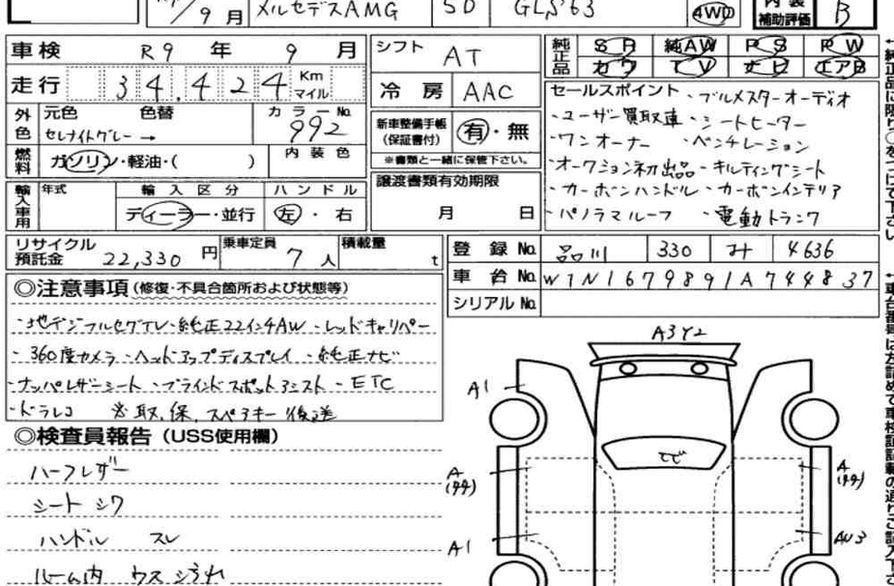 9月 メルセデスAMG 5D GLS63 4WD 内装補助評価 B
車検 R9年 9月 シフト AT 純正品 SR 純AW PS PW
カワ TV ナビ エアB
走行 34,424 Km マイル 冷房 AAC
外色 元色 色替 カラーNo. 992
セレナイトグレー →
新車整備手帳(保証書付) 有・無
※書類と一緒に保管下さい。
燃料 ガソリン・軽油・( ) 内装色
輸入車用 年式 輸入区分 ディーラー・並行 ハンドル 左・右
譲渡書類有効期限 月 日
セールスポイント ・ブルメスターオーディオ
・ユーザー買取車 ・シートヒーター
・ワンオーナー ・ベンチレーション
・オークション初出品 ・キルティングシート
・カーボンハンドル ・カーボンインテリア
・パノラマルーフ ・電動トランク
リサイクル預託金 22,330円 乗車定員 7人 積載量 t
登録No. 品川 330 み 4636
車台No. W1N1679891A744837
シリアルNo.
◎注意事項(修復・不具合個所および状態等)
・地デジフルセグTV ・純正22インチAW ・レッドキャリパー
・360度カメラ ・ヘッドアップディスプレイ ・純正ナビ
・ナッパレザーシート ・ブラインドスポットアシスト ・ETC
・ドラレコ ※取,保,スペアキー後送
◎検査員報告(USS使用欄)
ハーフレザー
シート シワ
ハンドル スレ
ルーム内 ウスヨゴレ
A3Y2
A1
トビ
A
A
A1
AU3